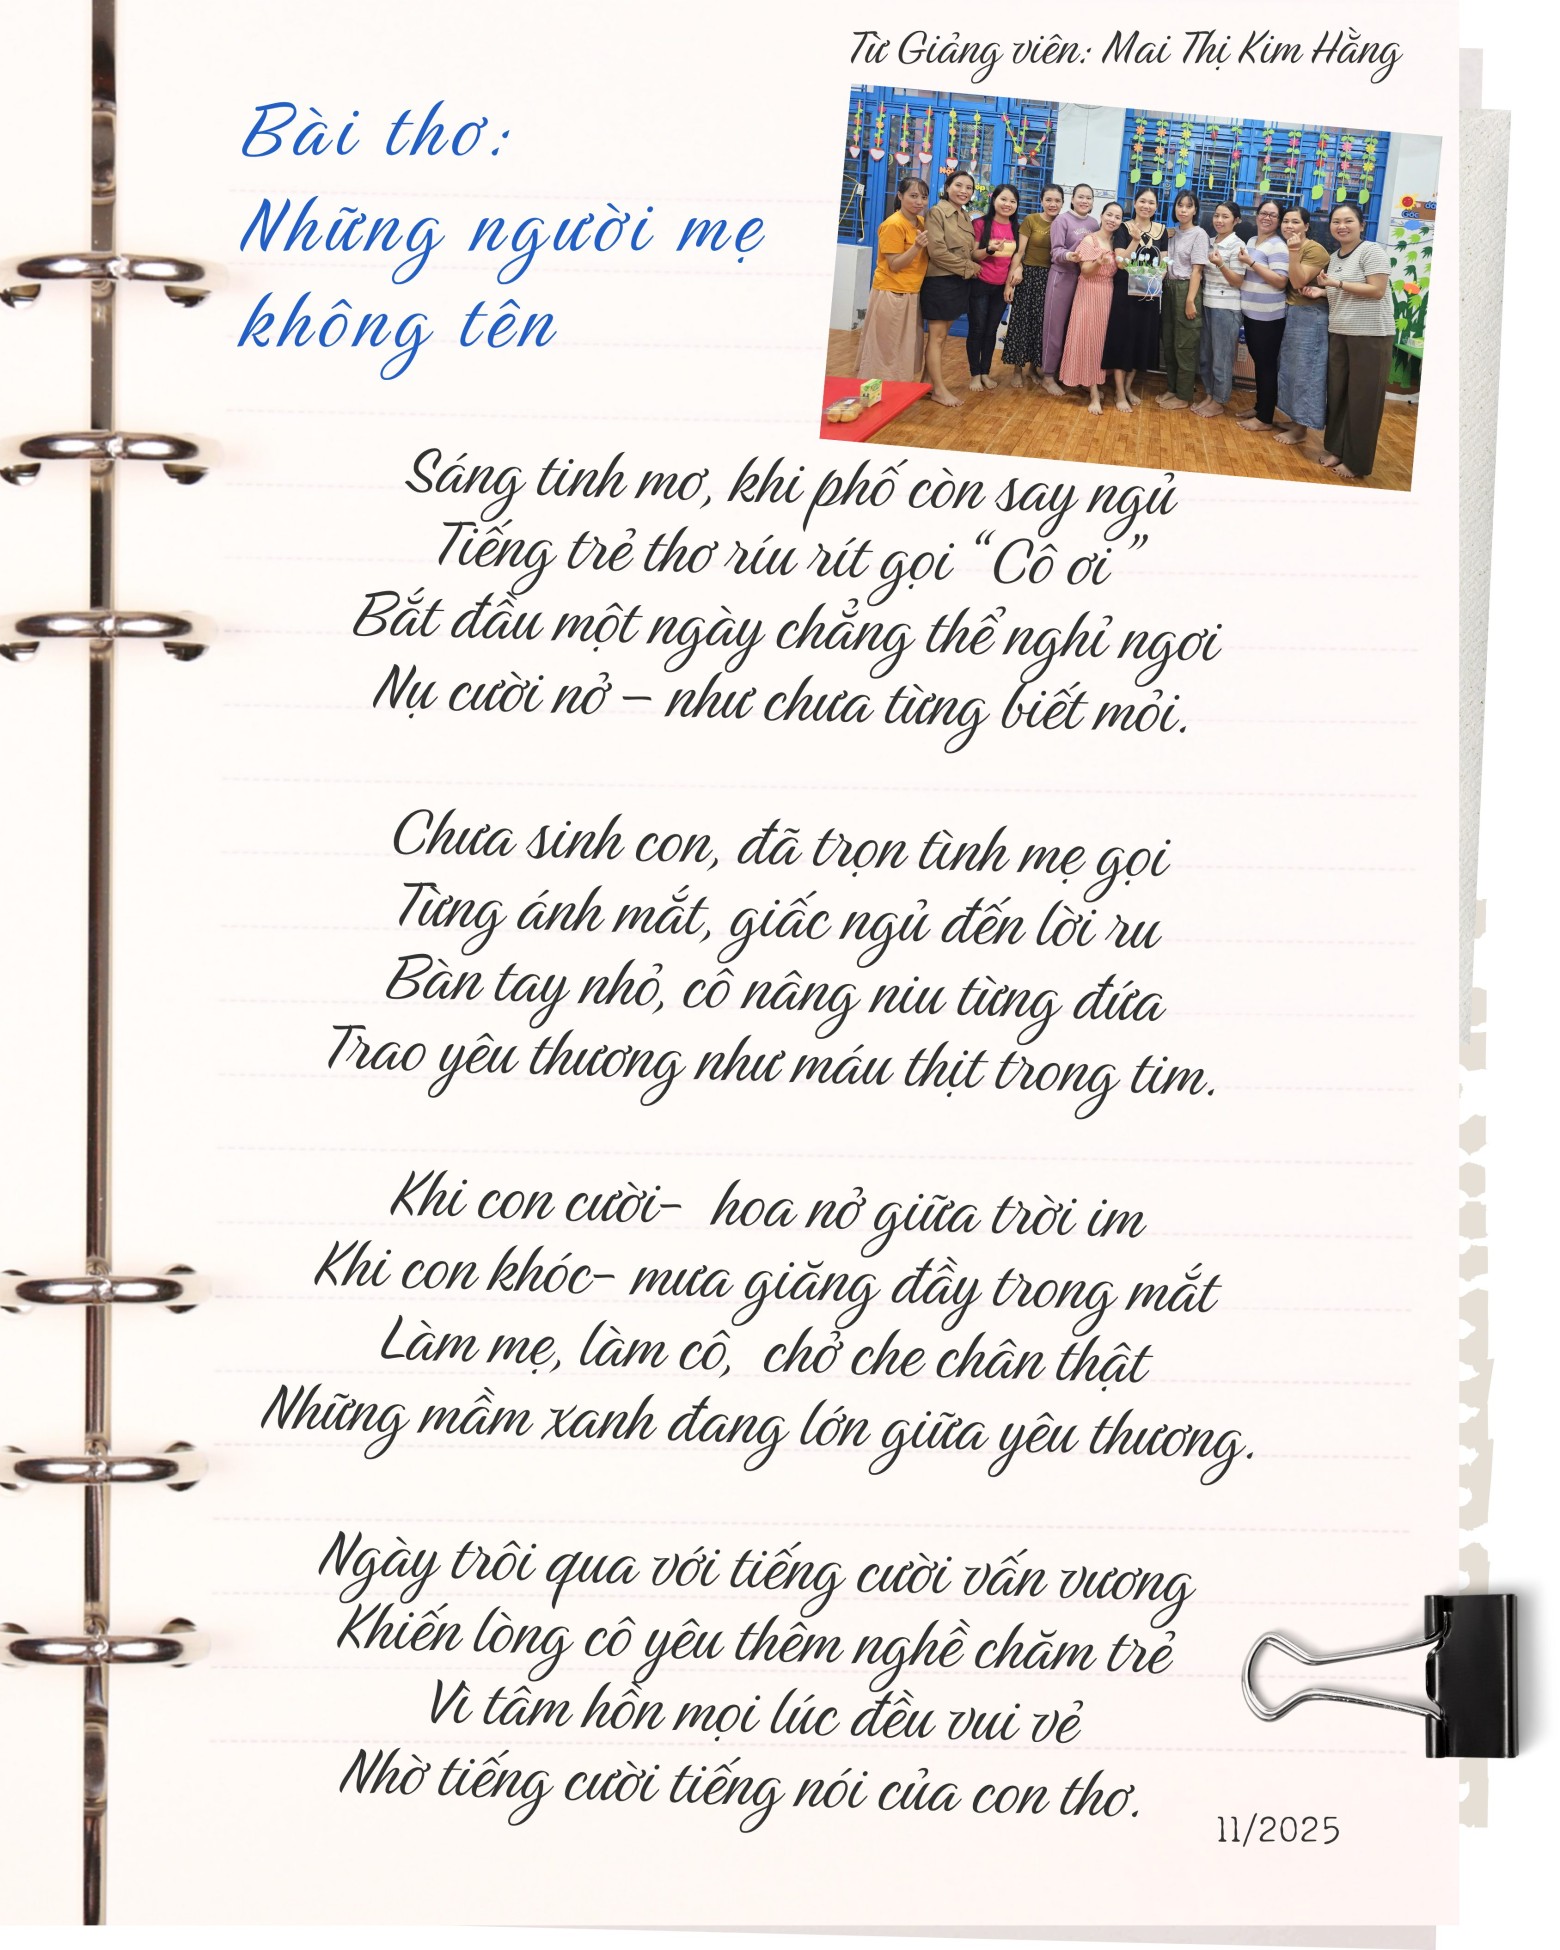 Từ Giảng viên: Mai Thị Kim Hằng
Bài thơ:
Những người mẹ
không tên
Sáng tinh mơ, khi phố còn say ngủ
Tiếng trẻ thơ ríu rít gọi “Cô ơi”
Bắt đầu một ngày chẳng thể nghỉ ngơi
Nụ cười nở – như chưa từng biết mỏi.
Chưa sinh con, đã trọn tình mẹ gọi
Từng ánh mắt, giấc ngủ đến lời ru
Bàn tay nhỏ, cô nâng niu từng đứa
Trao yêu thương như máu thịt trong tim.
Khi con cười- hoa nở giữa trời im
Khi con khóc- mưa giăng đầy trong mắt
Làm mẹ, làm cô, chở che chân thật
Những mầm xanh đang lớn giữa yêu thương.
Ngày trôi qua với tiếng cười vấn vương
Khiến lòng cô yêu thêm nghề chăm trẻ
Vì tâm hồn mọi lúc đều vui vẻ
Nhờ tiếng cười tiếng nói của con thơ.
11/2025